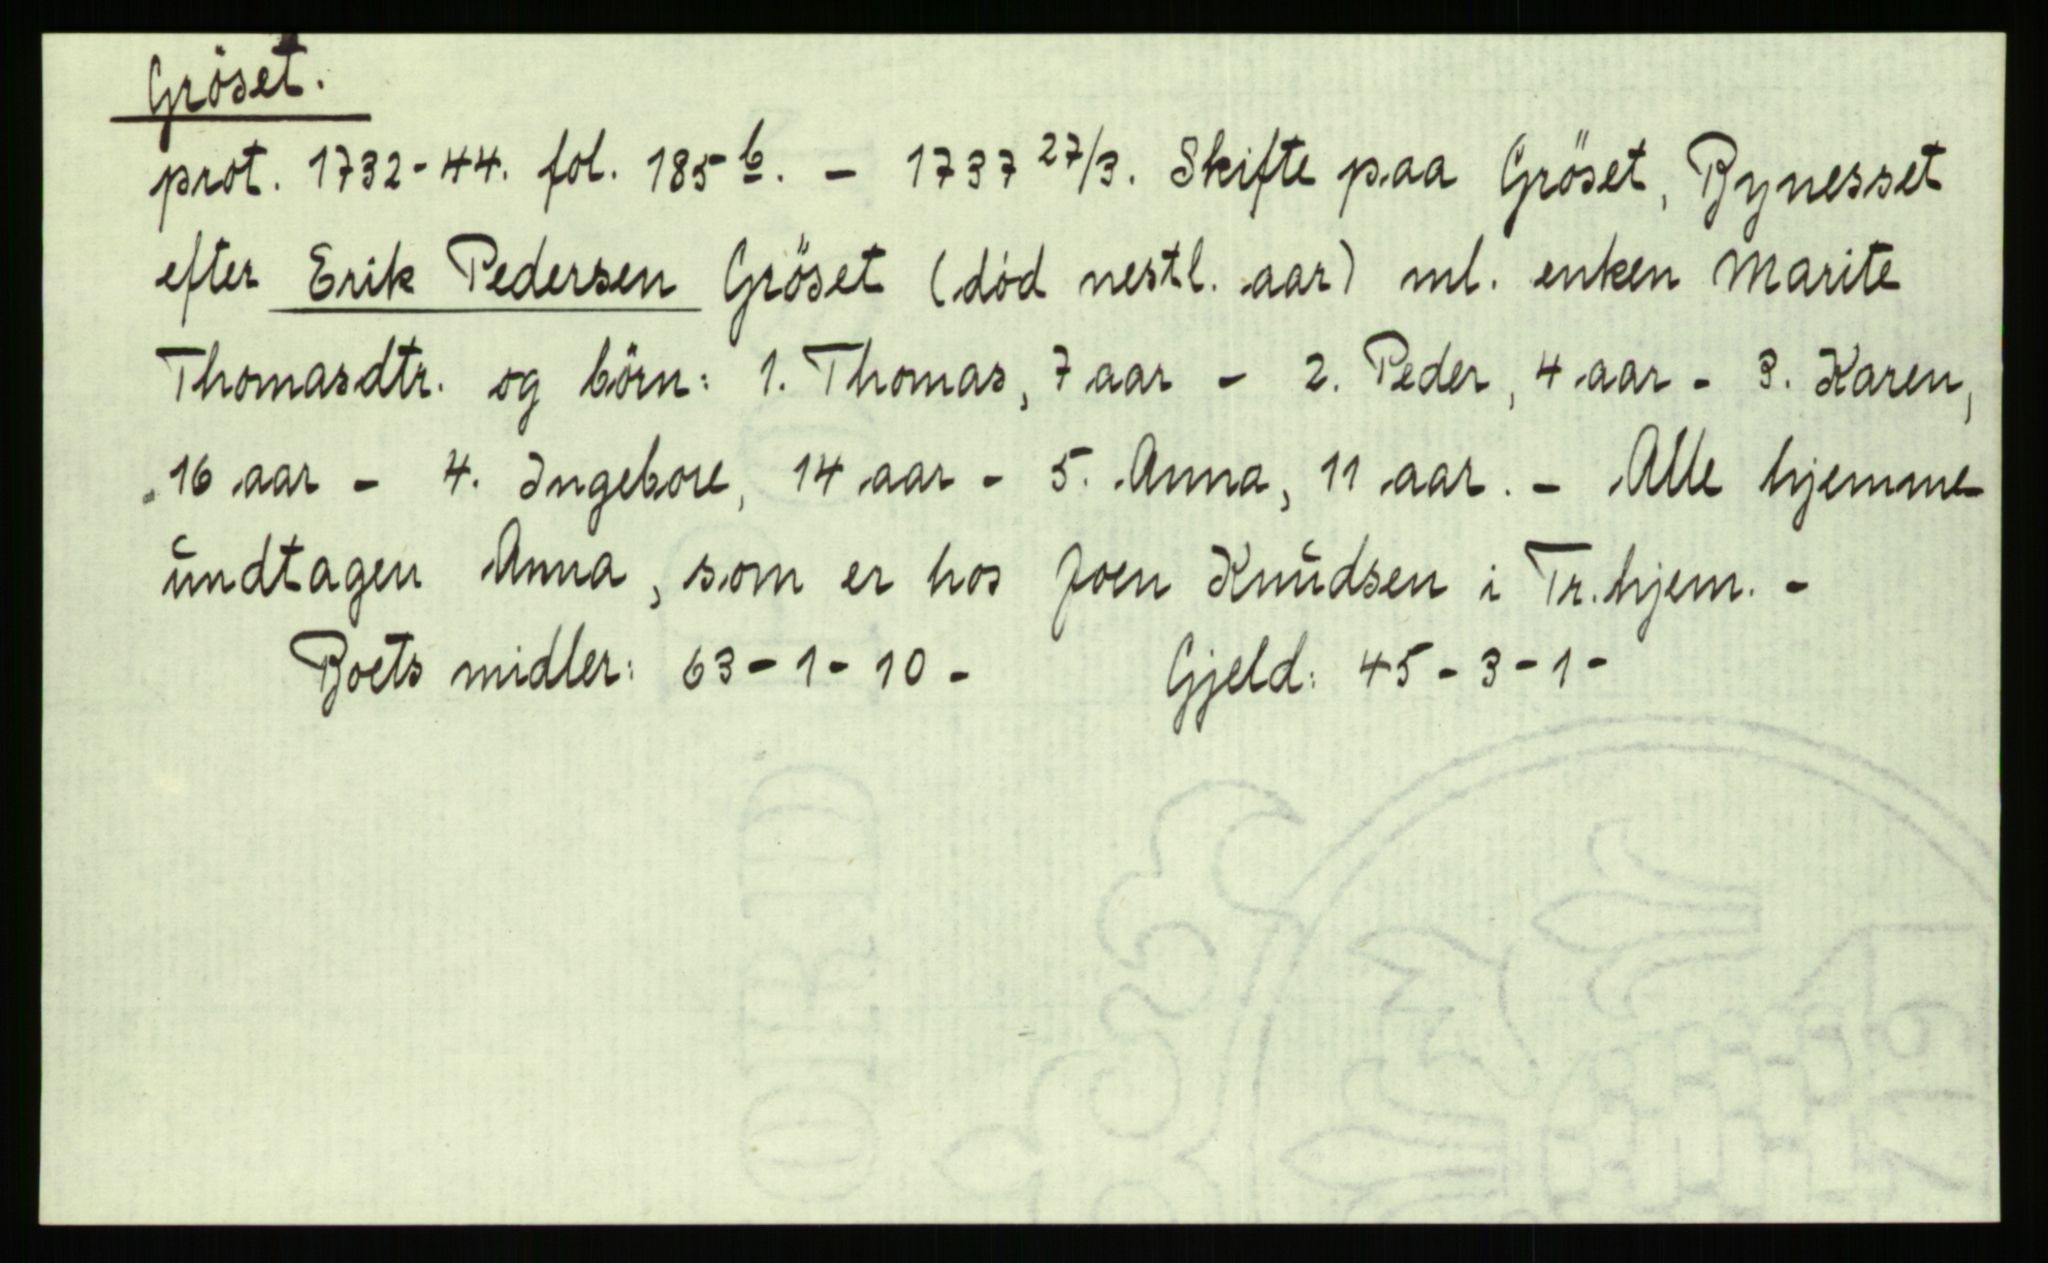 Gröset.
prot. 1732-44. fol. 185 b. – 1737 27/3. Skifte paa Gröset, Bynesset
efter Erik Pedersen Gröset (död nestl. aar) ml. enken Marite
Thomasdtr. og börn: 1. Thomas, 7 aar – 2. Peder, 4 aar – 3. Karen,
16 aar – 4. Ingebore, 14 aar – 5. Anna, 11 aar. – Alle hjemme
undtagen Anna, som er hos Joen Knudsen i Tr.hjem. –
Boets midler: 63 – 1 – 10 – Gjeld: 45 – 3 – 1 –